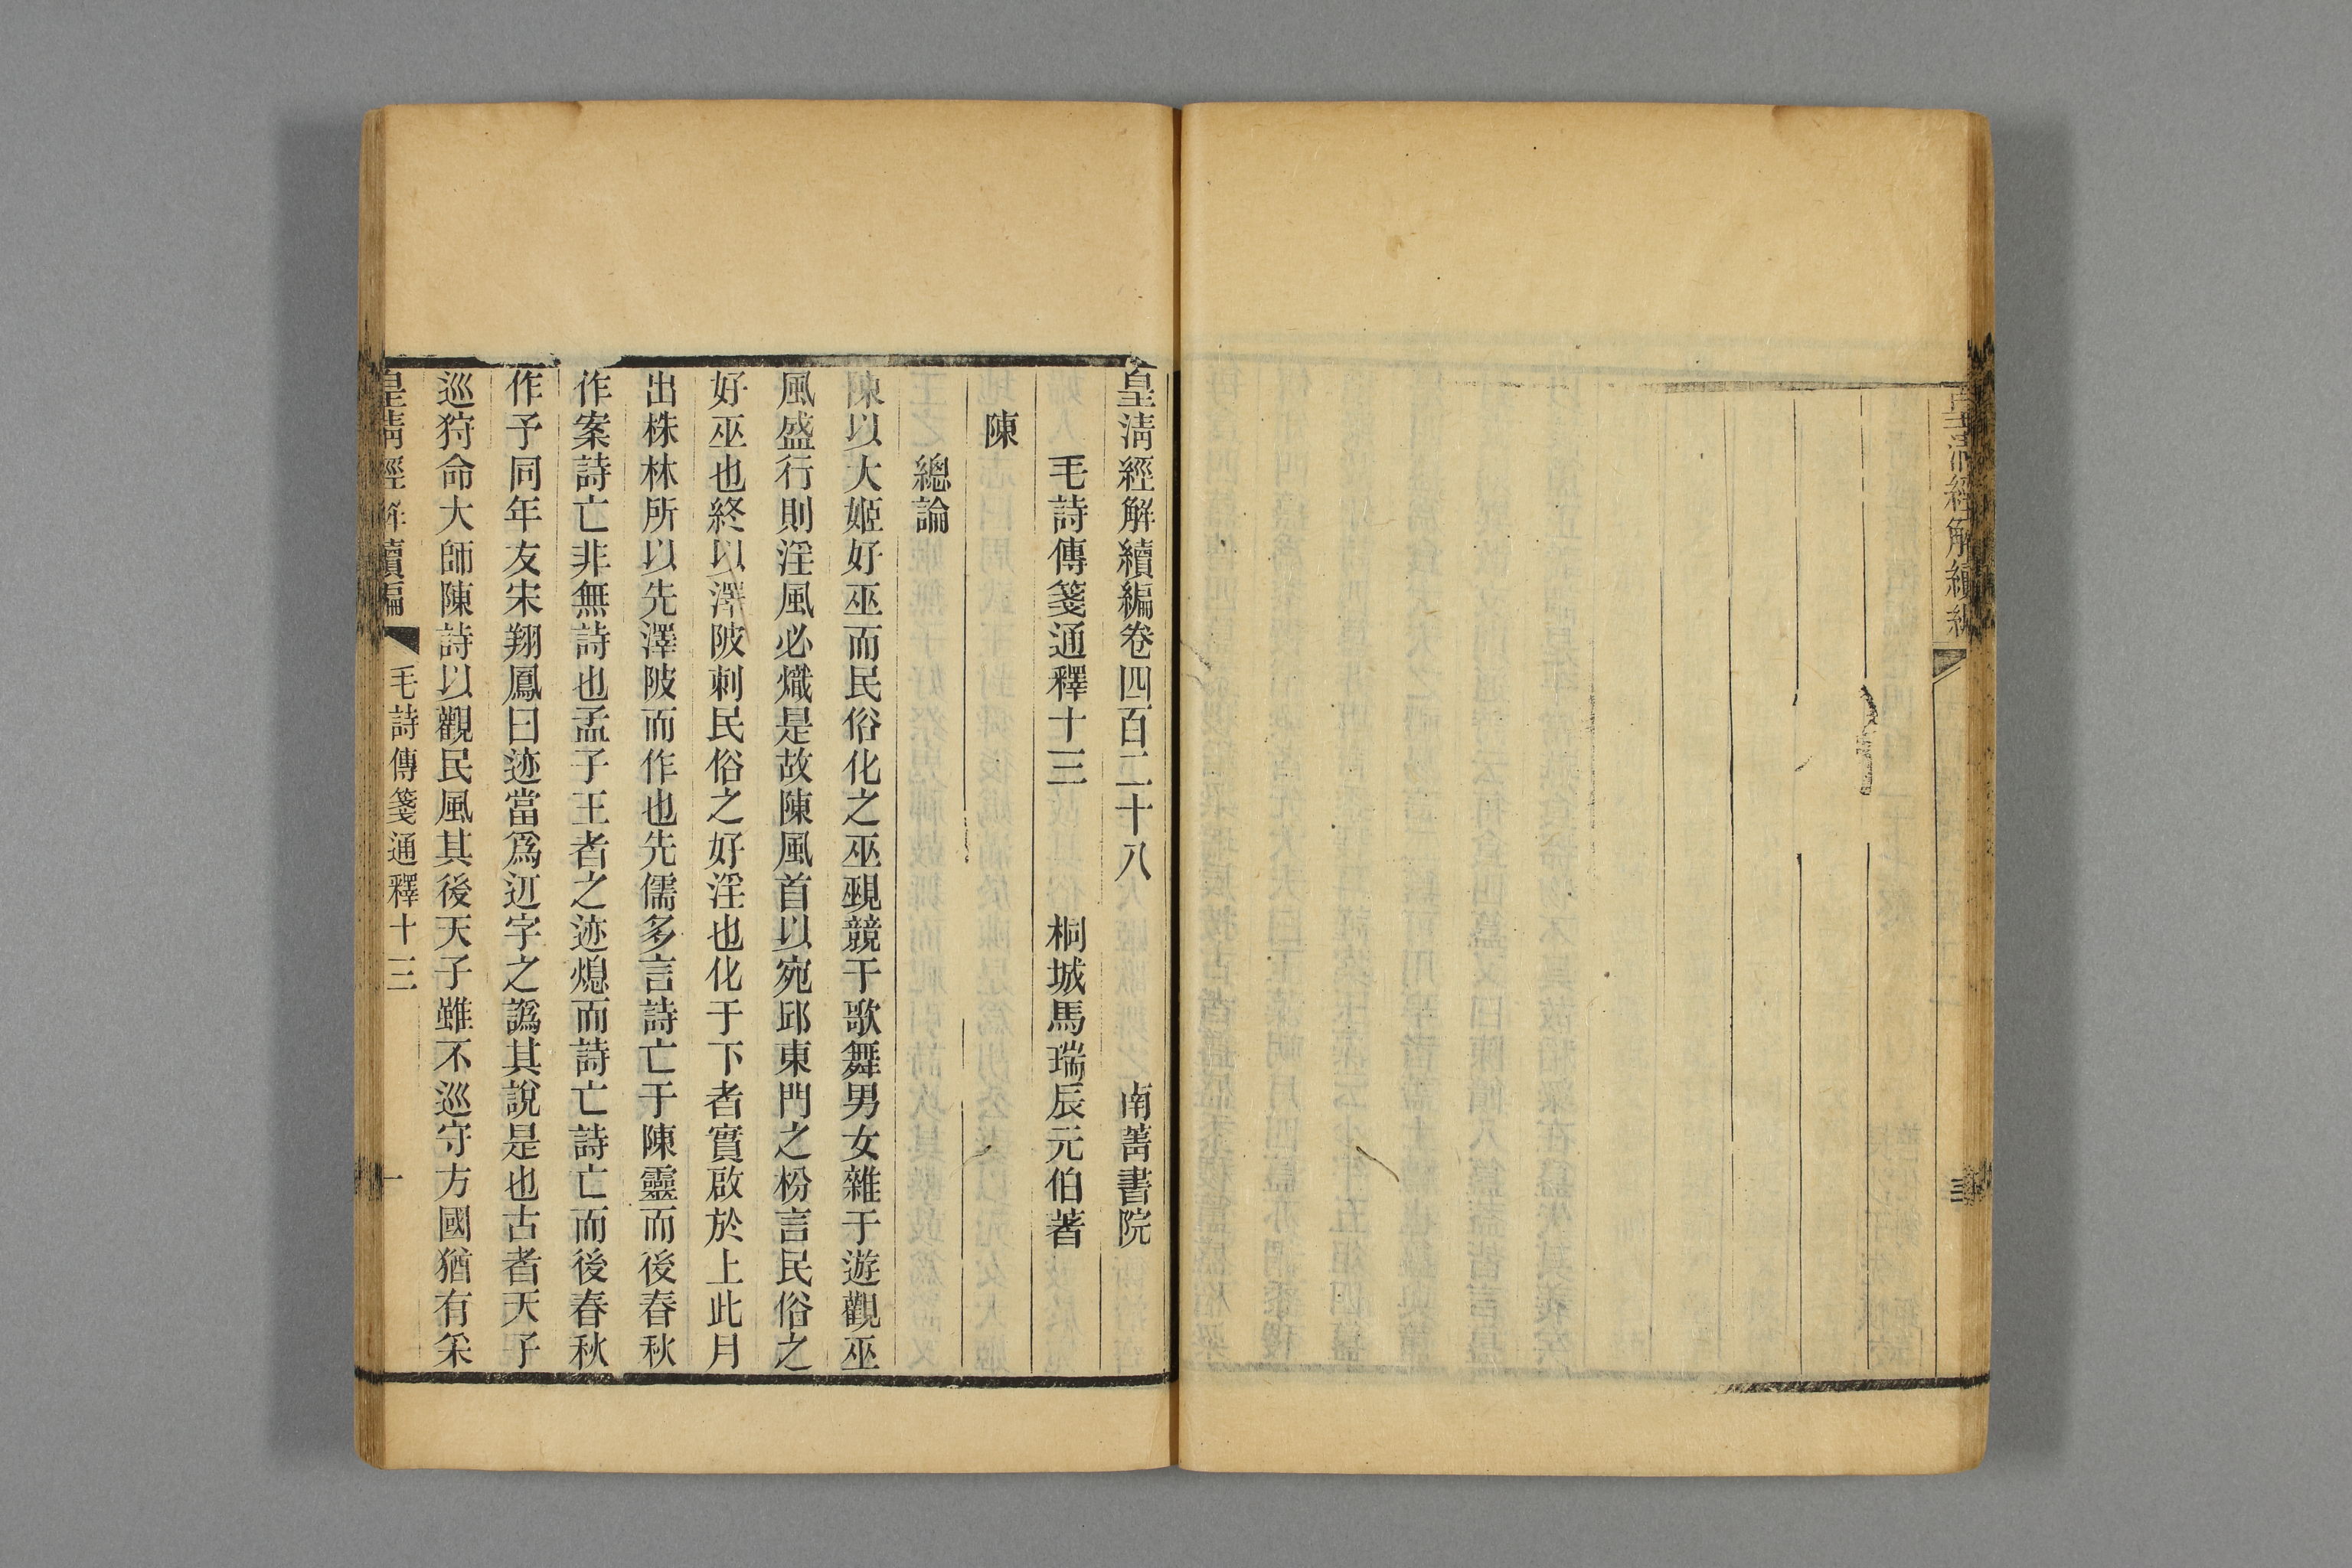 皇清經解續編
皇清經解續編卷四百二十八　南菁書院
毛詩傳箋通釋十三　桐城馬瑞辰元伯著
陳
總論
陳以大姬好巫而民俗化之巫覡競于歌舞男女雜于遊觀巫
風盛行則淫風必熾是故陳風首以宛邱東門之枌言民俗之
好巫也終以澤陂刺民俗之好淫也化于下者實啟於上此月
出株林所以先澤陂而作也先儒多言詩亡于陳靈而後春秋
作案詩亡非無詩也孟子王者之迹熄而詩亡詩亡而後春秋
作予同年友宋翔鳳曰迹當爲䢋字之譌其說是也古者天子
巡狩命大師陳詩以觀民風其後天子雖不巡守方國猶有采
皇清經解續編　毛詩傳箋通釋十三　一